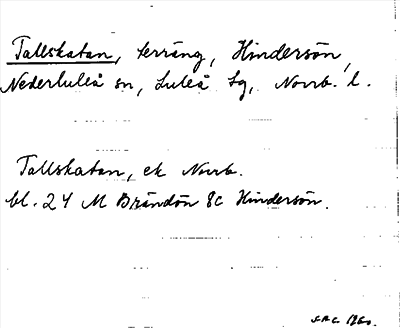 Tallskatan, terräng, Hindersön,
Nederluleå sn, Luleå tg, Norrb. l.
Tallskatan, ek Norrb.
bl. 24 M Brändön 8c Hindersön.